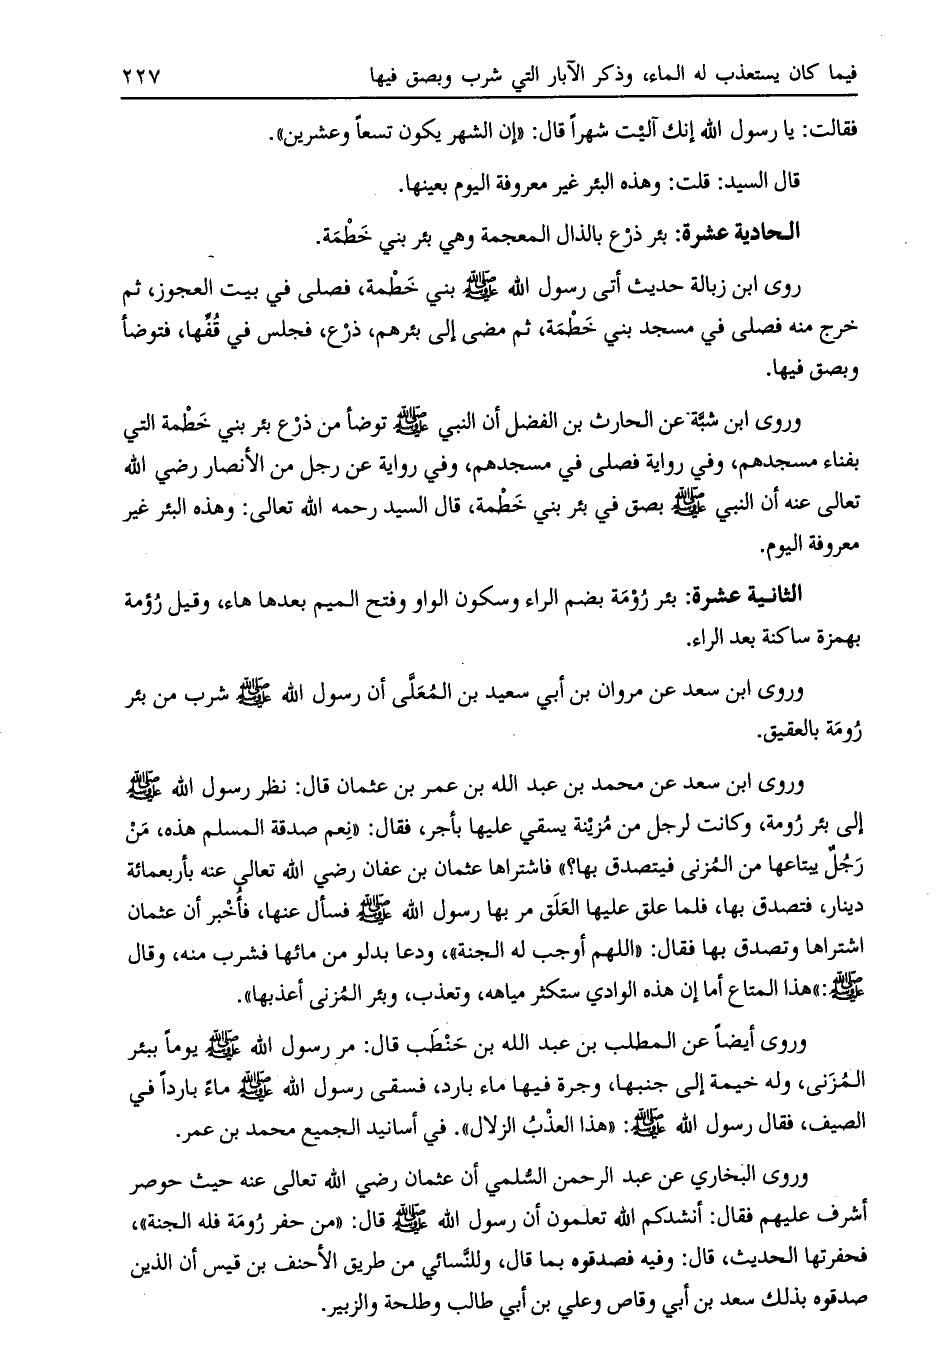 فيما كان يستعذب له الماء، وذكر الآبار التي شرب وبصق فيها ٢٢٧
فقالت: يا رسول الله إنك آليْت شهراً قال: «إن الشهر يكون تسعاً وعشرين».
قال السيد: قلت: وهذه البئر غير معروفة اليوم بعينها.
الحادية عشرة: بئر ذرْع بالذال المعجمة وهي بئر بني خَطْمَة.
روى ابن زبالة حديث أتى رسول الله ﷺ بني خَطْمة، فصلى في بيت العجوز، ثم
خرج منه فصلى في مسجد بني خَطْمَة، ثم مضى إلى بئرهم، ذرْع، فجلس في قُفِّها، فتوضأ
وبصق فيها.
وروى ابن شبَّة عن الحارث بن الفضل أن النبي ﷺ توضأ من ذرْع بئر بني خَطْمة التي
بفناء مسجدهم، وفي رواية فصلى في مسجدهم، وفي رواية عن رجل من الأنصار رضي الله
تعالى عنه أن النبي ﷺ بصق في بئر بني خَطْمة، قال السيد رحمه الله تعالى: وهذه البئر غير
معروفة اليوم.
الثانية عشرة: بئر رُوْمَة بضم الراء وسكون الواو وفتح الميم بعدها هاء، وقيل رُؤمة
بهمزة ساكنة بعد الراء.
وروى ابن سعد عن مروان بن أبي سعيد بن المُعَلَّى أن رسول الله ﷺ شرب من بئر
رُومَة بالعقيق.
وروى ابن سعد عن محمد بن عبد الله بن عمر بن عثمان قال: نظر رسول الله ﷺ
إلى بئر رُومة، وكانت لرجل من مُزيْنة يسقي عليها بأجر، فقال: «نِعم صدقة المسلم هذه، مَنْ
رَجُلٌ يبتاعها من المُزنى فيتصدق بها؟» فاشتراها عثمان بن عفان رضي الله تعالى عنه بأربعمائة
دينار، فتصدق بها، فلما علق عليها العَلَق مر بها رسول الله ﷺ فسأل عنها، فأُخْبر أن عثمان
اشتراها وتصدق بها فقال: «اللهم أوجب له الجنة»، ودعا بدلو من مائها فشرب منه، وقال
ﷺ:«هذا المتاع أما إن هذه الوادي ستكثر مياهه، وتعذب، وبئر المُزنى أعذبها».
وروى أيضاً عن المطلب بن عبد الله بن حَنْطَب قال: مر رسول الله ﷺ يوماً ببئر
المُزَنى، وله خيمة إلى جنبها، وجرة فيها ماء بارد، فسقى رسول الله ﷺ ماءً بارداً في
الصيف، فقال رسول الله ﷺ: «هذا العذْبُ الزلال». في أسانيد الجميع محمد بن عمر.
وروى البخاري عن عبد الرحمن السُّلمي أن عثمان رضي الله تعالى عنه حيث حوصر
أشرف عليهم فقال: أنشدكم الله تعلمون أن رسول الله ﷺ قال: «من حفر رُومَة فله الجنة»،
فحفرتها الحديث، قال: وفيه فصدقوه بما قال، وللنَّسائي من طريق الأحنف بن قيس أن الذين
صدقوه بذلك سعد بن أبي وقاص وعلي بن أبي طالب وطلحة والزبير.